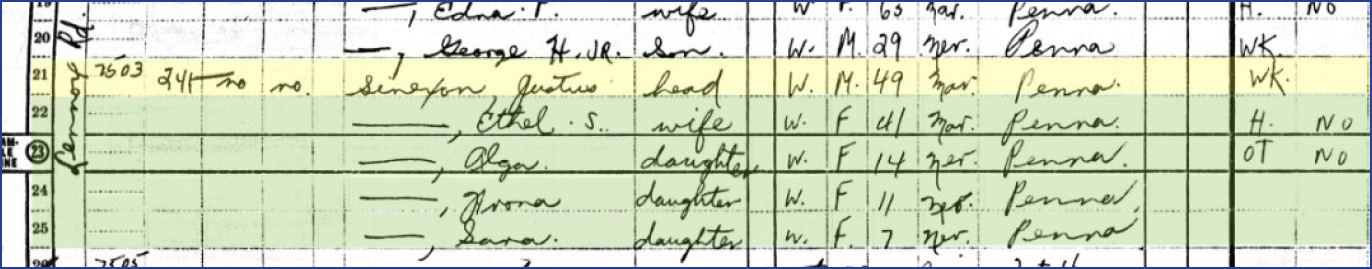 19 —, Edna. F. wife W. F. 65 Mar. Penna. H. No
20 —, George H. JR. Son. W. M. 29 Nev. Penna WK.
21 7503 no no. Sinexon, Justus head W. M. 49 Mar. Penna. WK.
22 —, Ethel. S. wife W. F 41 Mar. Penna. H. No
23 —, Olga. daughter W. F 14 Nev. Penna. OT No
24 —, daughter W. F 11 Nev. Penna.
25 —, Sara. daughter W. F. 7 Nev. Penna
7505
Rd.